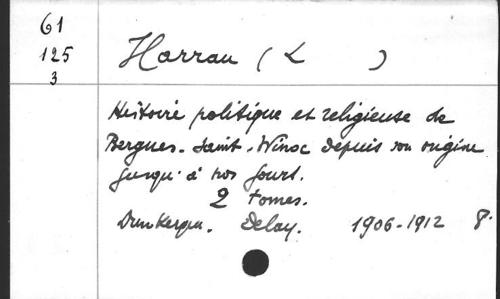 61
125
3
Harrau ( L )
Histoire politique et religieuse de
Bergues-Saint-Winoc depuis son origine
jusqu'à nos jours.
2 tomes.
Dunkerque. Delay. 1906-1912 8°